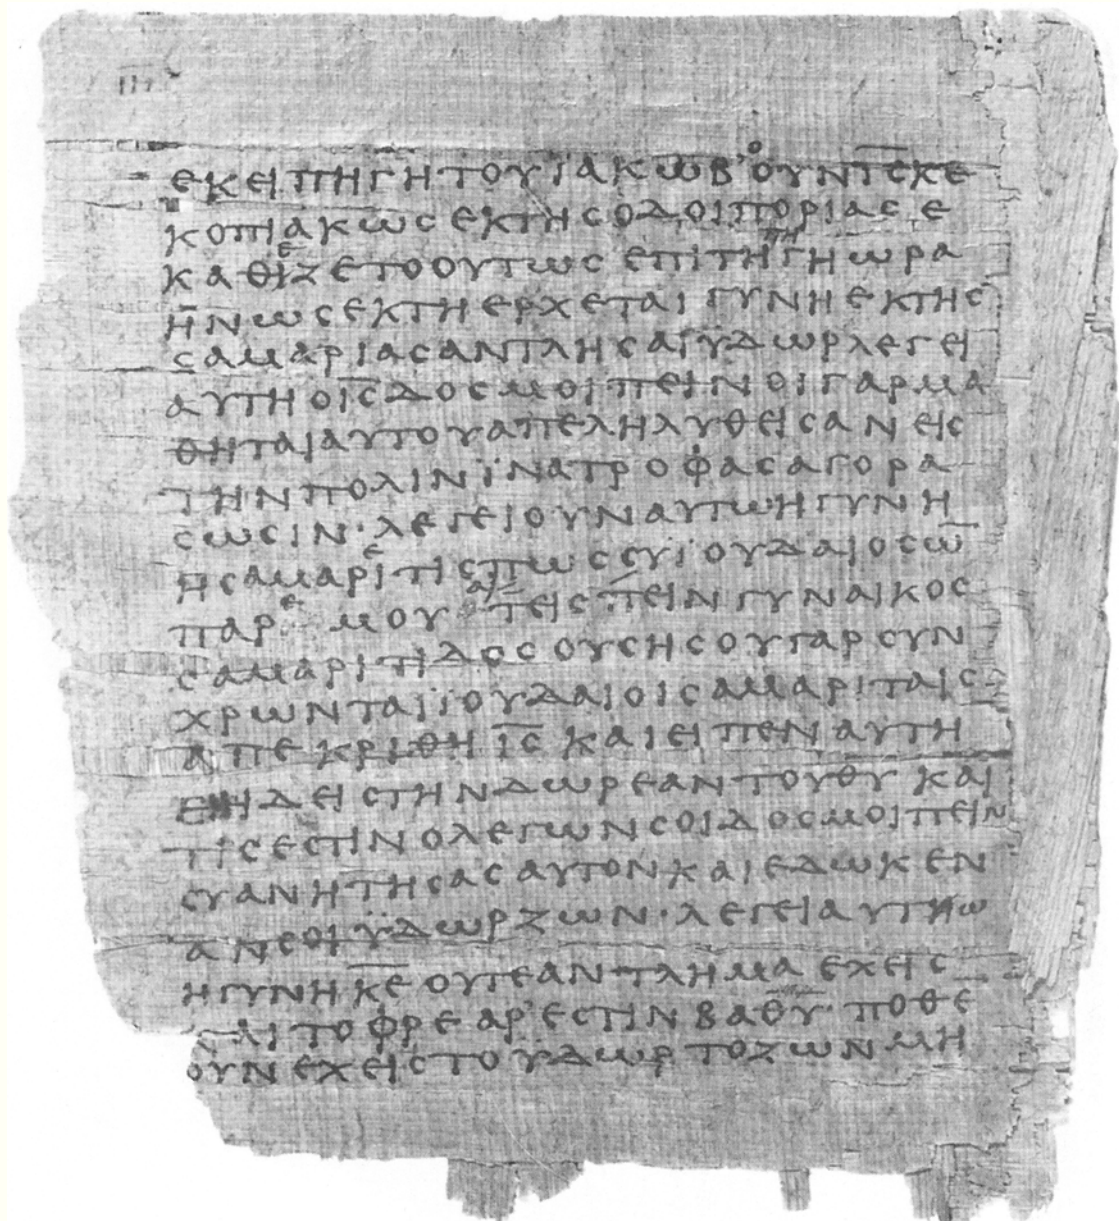 εκει πηγη του ϊακωβ’ ὁ ουν ι̅ς̅ κε
κοπιακως εκ της οδοιποριας ε
καθιζετο ουτως επι τη πηγη ωρα
ην ως εκτη ερχεται γυνη εκ της
σαμαριας αντλησαι ϋδωρ λεγει
αυτη ο ι̅ς̅ δος μοι πειν οι γαρ μα
θηται αυτου απεληλυθεισαν εις
την πολιν ϊνα τροφας αγορα
σωσιν · λεγει ουν αυτω η γυνη
η σαμαρειτις πως συ ϊουδαιος ω̅
παρ εμου αιτεις πειν γυναικος
σαμαριτιδος ουσης ου γαρ συν
χρωνται ϊουδαιοι σαμαριταις
απεκριθη ι̅ς̅ και ειπεν αυτη
ει ηδεις την δωρεαν του θ̅υ̅ και
τις εστιν ο λεγων σοι δος μοι πειν
συ αν ητησας αυτον και εδωκεν
αν σοι ϋδωρ ζων · λεγει αυτω
η γυνη κ̅ε̅ ουτε αντλημα εχεις
και το φρεαρ’ εστιν βαθυ · ποθε̅
ουν εχεις το ϋδωρ το ζων μη